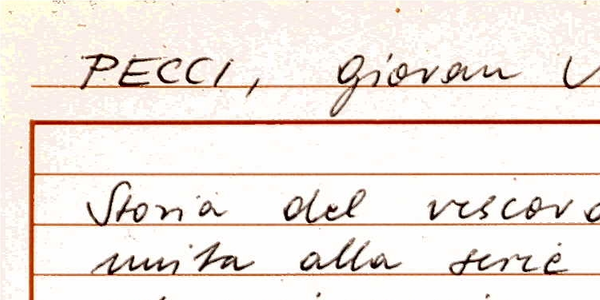 PECCI, Giovan V
Storia del vescova
unita alla serie